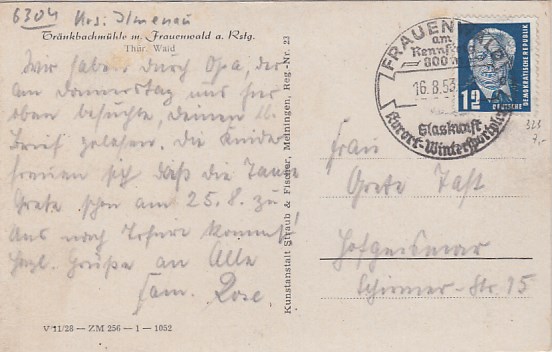 6304 Krs. Ilmenau
Tränkbachmühle m. Frauenwald a. Rstg.
Thür. Wald
Wir haben durch Opa, der
am Donnerstag uns hier
oben besuchte, deinen lb.
Brief gelesen. Die Kinder
freuen sich daß die Tante
Grete schon am 25.8. zu
uns nach Erfurt kommt!
Herzl. Grüße an Alle
Fam. Rose.
V 11/28 — ZM 256 — 1 — 1052
Kunstanstalt Straub & Fischer, Meiningen, Reg.-Nr. 23
FRAUENWALD
am
Rennstg
800 m
16.8.53
Glaskunst
Kurort-Wintersportplatz
12
DEUTSCHE
DEMOKRATISCHE REPUBLIK
Frau
Grete Fast
Hofgeismar
Schirmer-Str. 15